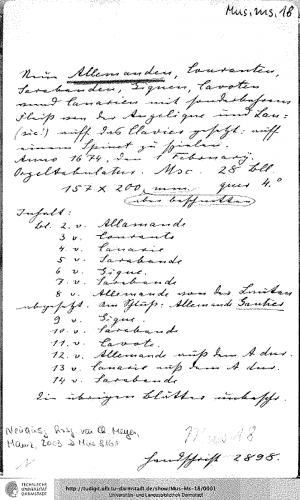 Mus. ms. 18
Neun Allemanden, Couranten,
Sarabanden, Giquen, Gavoten
und Canarien mit sonderbahrem
Fleiß von der Angelique und Lau=
(sic!) uff das Clavier gesetzt: uff
einem Spinet zu spielen.
Anno 1674, den 1 February
Orgeltabulatur. Msc. 28 bll.
157 x 200 mm quer 4.°
Inhalt:
bl. 2 v. Allamande
3 v. Courante
4 v. Canarie
5 v. Sarabande
6 v. Gique.
7 v. Sarabande
8 v. Allemande von der Lauten
abgesetzt. am Schluß: Allemande Gautier
9 v. Gique.
10 v. Sarabande
11 v. Gavote.
12 v. Allemande auß dem A dur.
13 v. Canarie auß dem A dur.
14 v. Sarabande.
Die übrigen Blätter unbeschr.
Mus 18
Neuausg. hrsg. von Ch. Meyer,
Mainz, 2003
Handschrift 2898.
TECHNISCHE
UNIVERSITÄT
DARMSTADT
http://tudigit.ulb.tu-darmstadt.de/show/Mus-Ms-18/0001
Universitäts- und Landesbibliothek Darmstadt